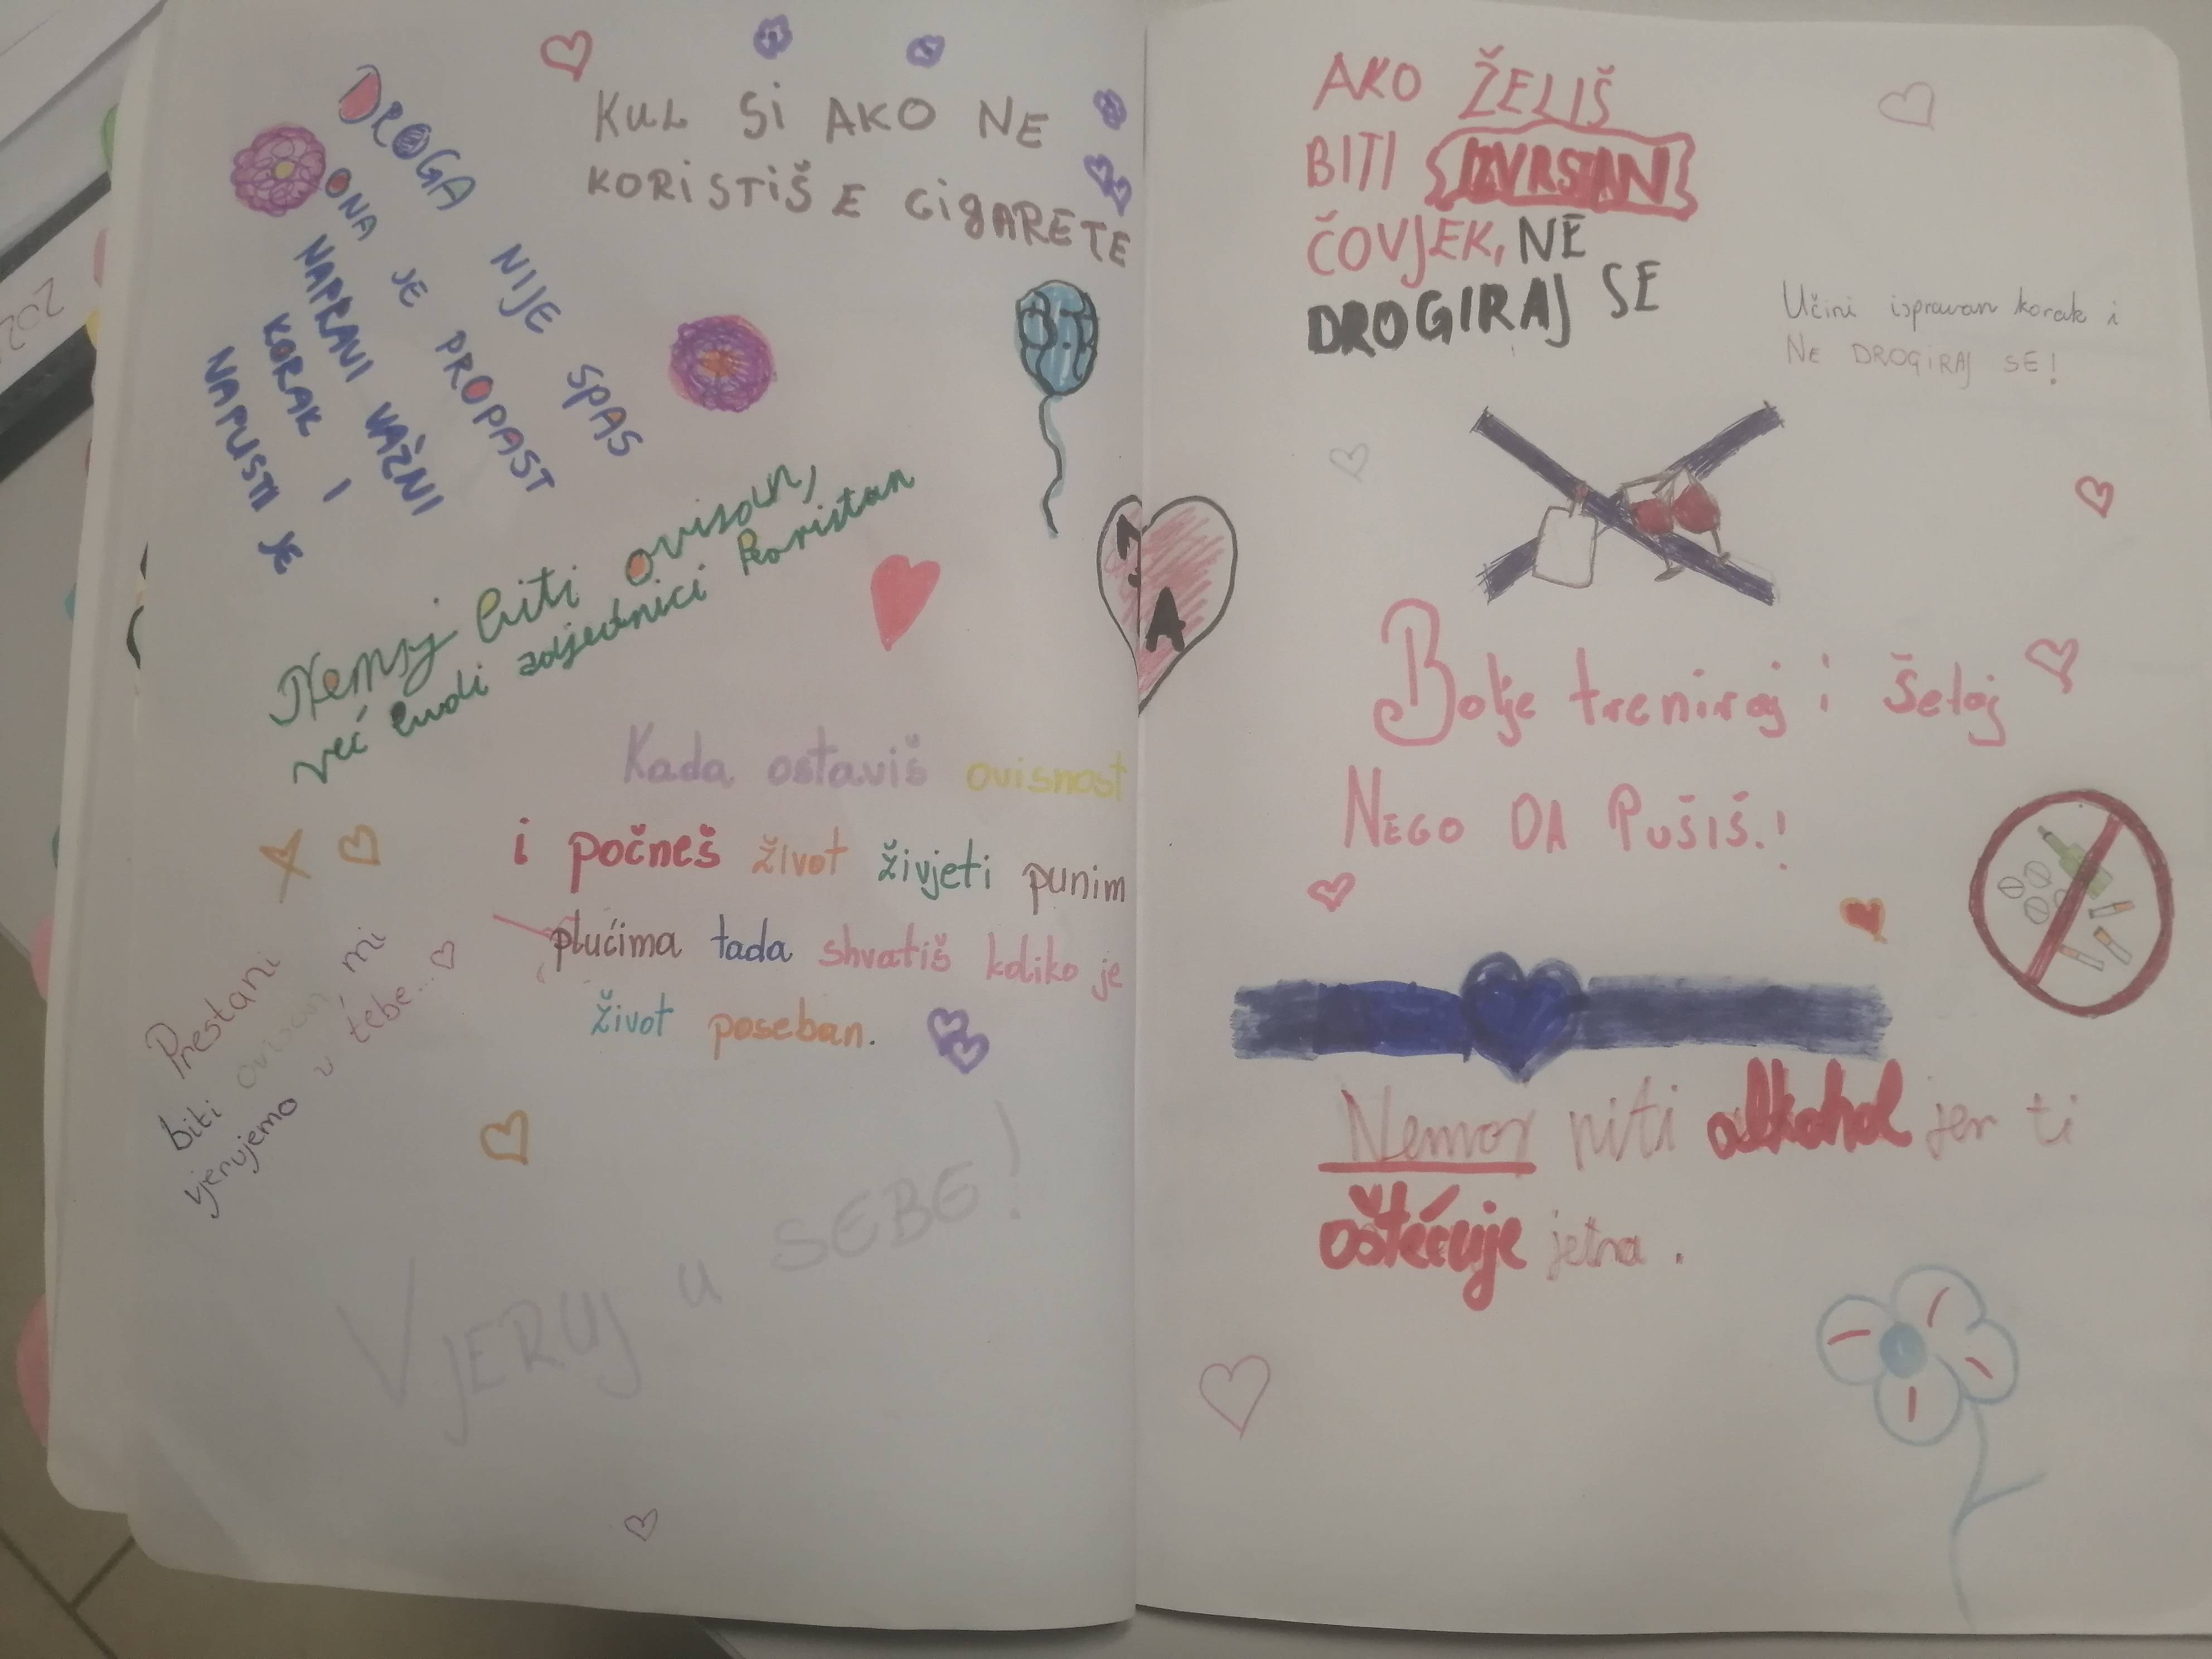 DROGA NIJE SPAS
ONA JE PROPAST
NAPRAVI VAŽNI
KORAK I
NAPUSTI JE
KUL SI AKO NE
KORISTIŠ E CIGARETE
Nemoj biti ovisan,
već budi zajednici koristan
Kada ostaviš ovisnost
i počneš život živjeti punim
plućima tada shvatiš koliko je
život poseban.
Prestani
biti ovisan mi
vjerujemo u tebe...
VJERUJ u SEBE!
A
AKO ŽELIŠ
BITI IZVRSTAN
ČOVJEK, NE
DROGIRAJ SE
Učini ispravan korak i
NE DROGIRAJ SE!
Bolje treniraj i šetaj
NEGO DA PUŠIŠ.!
Nemoj piti alkohol jer ti
oštećuje jetra.